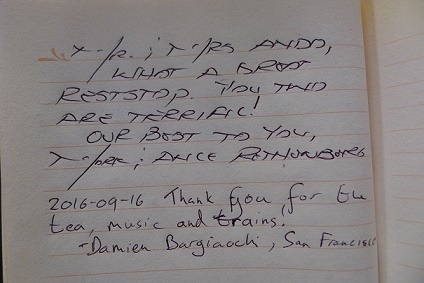 Mr. & Mrs Ando,
What a great
reststop. You two
are terrific!
Our best to you,
2016-09-16 Thank you for the
tea, music and trains.
-Damien Bargiacchi, San Francisco